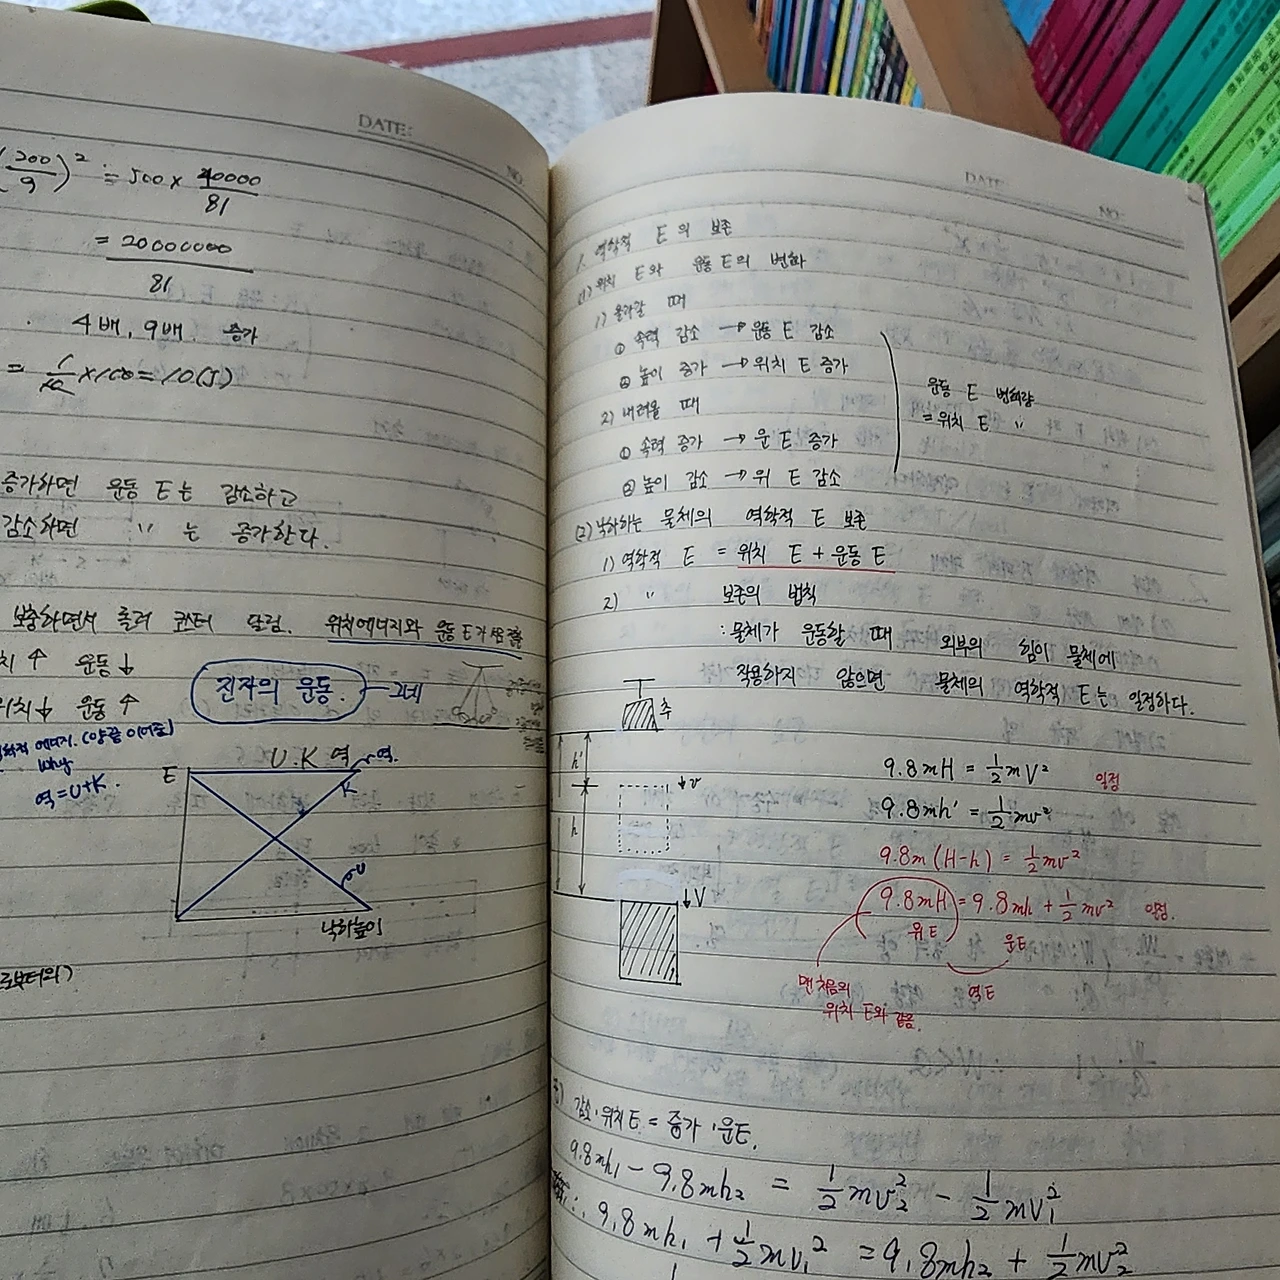 DATE:
NO.
(200/9)² ≒ 500 × 40000/81
= 20000000/81
4배, 9배 증가
= 1/10 × 100 = 10(J)
증가하면 운동 E는 감소하고
감소하면 〃 는 증가한다.
보충하면서 롤러 코터 달림. 위치에너지와 운동 E가
치↑ 운동↓
위치↓ 운동↑
진자의 운동. 그네
에너지. (양끝
why
역=U+K.
U.K 역
역.
E
K
U
낙하높이
로부터의)
DATE
NO.
1. 역학적 E의 보존
(1) 위치 E와 운동 E의 변화
1) 올라갈 때
① 속력 감소 → 운동 E 감소
② 높이 증가 → 위치 E 증가
2) 내려올 때
① 속력 증가 → 운 E 증가
② 높이 감소 → 위 E 감소
운동 E 변화량
= 위치 E 〃
(2) 낙하하는 물체의 역학적 E 보존
1) 역학적 E = 위치 E + 운동 E
2) 〃 보존의 법칙
: 물체가 운동할 때 외부의 힘이 물체에
작용하지 않으면 물체의 역학적 E는 일정하다.
추
h'
h
↓v
↓V
9.8mH = 1/2mV² 일정
9.8mh' = 1/2mv²
9.8m(H-h) = 1/2mv²
9.8mH = 9.8mh + 1/2mv² 일정.
위E
운E
역E
맨 처음의
위치 E와 같음.
감소 위치E = 증가 운E.
9.8mh₁ - 9.8mh₂ = 1/2mv₂² - 1/2mv₁²
∴ 9.8mh₁ + 1/2mv₁² = 9.8mh₂ + 1/2mv₂²